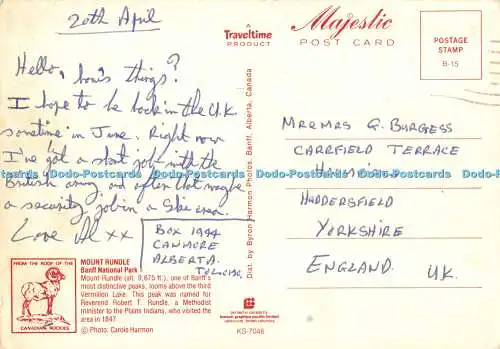 20th April
Hello, how's things?
I hope to be back in the U.K
sometime in June. Right now
I've got a short job with the
British army and after that maybe
a security job in a Ski area.
Love Al xx
BOX 1944
CANMORE
ALBERTA.
FROM THE ROOF OF THE
CANADIAN ROCKIES
MOUNT RUNDLE
Banff National Park
Mount Rundle (alt. 9,675 ft.), one of Banff's
most distinctive peaks, looms above the third
Vermilion Lake. This peak was named for
Reverend Robert T. Rundle, a Methodist
minister to the Plains Indians, who visited the
area in 1847.
© Photo: Carole Harmon
A
Traveltime
PRODUCT
Dist. by Byron Harmon Photos, Banff, Alberta, Canada
KS-7046
Majestic
POST CARD
POSTAGE
STAMP
B-15
MR & MRS G. BURGESS
CARRFIELD TERRACE
HUDDERSFIELD
YORKSHIRE
ENGLAND. U.K.
Dodo-Postcards Dodo-Postcards Dodo-Postcards Dodo-Postcards Dodo-Postcards Dodo-Postcards